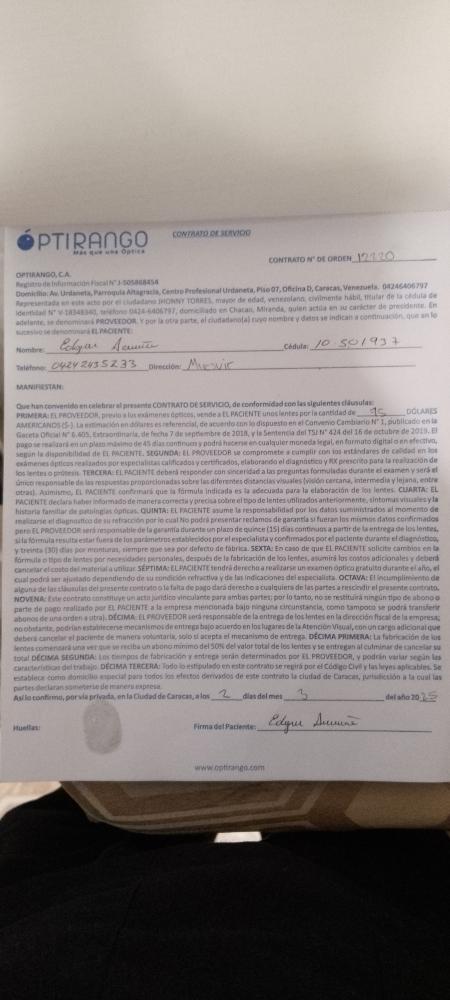 ÓPTIRANGO
Más que una Óptica
CONTRATO DE SERVICIO
CONTRATO N° DE ORDEN 12120
OPTIRANGO, C.A.
Registro de Información Fiscal N° J-505868454
Domicilio: Av. Urdaneta, Parroquia Altagracia, Centro Profesional Urdaneta, Piso 07, Oficina D, Caracas, Venezuela. 04246406797
Representada en este acto por el ciudadano JHONNY TORRES, mayor de edad, venezolano, civilmente hábil, titular de la cédula de
identidad N° V-18348340, teléfono 0424-6406797, domiciliado en Chacao, Miranda, quien actúa en su carácter de presidente. En
adelante, se denominará PROVEEDOR. Y por la otra parte, el ciudadano(a) cuyo nombre y datos se indican a continuación, que en lo
sucesivo se denominará EL PACIENTE:
Nombre: Edgar Cédula: 10 501937
Teléfono: 04242435233 Dirección:
MANIFIESTAN:
Que han convenido en celebrar el presente CONTRATO DE SERVICIO, de conformidad con las siguientes cláusulas:
PRIMERA: EL PROVEEDOR, previo a los exámenes ópticos, vende a EL PACIENTE unos lentes por la cantidad de 95 DÓLARES
AMERICANOS ($-). La estimación en dólares es referencial, de acuerdo con lo dispuesto en el Convenio Cambiario N° 1, publicado en la
Gaceta Oficial N° 6.405, Extraordinaria, de fecha 7 de septiembre de 2018, y la Sentencia del TSJ N° 424 del 16 de octubre de 2019. El
pago se realizará en un plazo máximo de 45 días continuos y podrá hacerse en cualquier moneda legal, en formato digital o en efectivo,
según la disponibilidad de EL PACIENTE. SEGUNDA: EL PROVEEDOR se compromete a cumplir con los estándares de calidad en los
exámenes ópticos realizados por especialistas calificados y certificados, elaborando el diagnóstico y RX prescrito para la realización de
los lentes o prótesis. TERCERA: EL PACIENTE deberá responder con sinceridad a las preguntas formuladas durante el examen y será el
único responsable de las respuestas proporcionadas sobre las diferentes distancias visuales (visión cercana, intermedia y lejana, entre
otras). Asimismo, EL PACIENTE confirmará que la fórmula indicada es la adecuada para la elaboración de los lentes. CUARTA: EL
PACIENTE declara haber informado de manera correcta y precisa sobre el tipo de lentes utilizados anteriormente, síntomas visuales y la
historia familiar de patologías ópticas. QUINTA: EL PACIENTE asume la responsabilidad por los datos suministrados al momento de
realizarse el diagnostico de su refracción por lo cual No podrá presentar reclamos de garantía si fueran los mismos datos confirmados
pero EL PROVEEDOR será responsable de la garantía durante un plazo de quince (15) días continuos a partir de la entrega de los lentes,
si la fórmula resulta estar fuera de los parámetros establecidos por el especialista y confirmados por el paciente durante el diagnóstico,
y treinta (30) días por monturas, siempre que sea por defecto de fábrica. SEXTA: En caso de que EL PACIENTE solicite cambios en la
fórmula o tipo de lentes por necesidades personales, después de la fabricación de los lentes, asumirá los costos adicionales y deberá
cancelar el costo del material a utilizar. SÉPTIMA: EL PACIENTE tendrá derecho a realizarse un examen óptico gratuito durante el año, el
cual podrá ser ajustado dependiendo de su condición refractiva y de las indicaciones del especialista. OCTAVA: El incumplimiento de
alguna de las cláusulas del presente contrato o la falta de pago dará derecho a cualquiera de las partes a rescindir el presente contrato.
NOVENA: Este contrato constituye un acto jurídico vinculante para ambas partes; por lo tanto, no se restituirá ningún tipo de abono o
parte de pago realizado por EL PACIENTE a la empresa mencionada bajo ninguna circunstancia, como tampoco se podrá transferir
abonos de una orden a otra). DÉCIMA: EL PROVEEDOR será responsable de la entrega de los lentes en la dirección fiscal de la empresa;
no obstante, podrían establecerse mecanismos de entrega bajo acuerdo en los lugares de la Atención Visual, con un cargo adicional que
deberá cancelar el paciente de manera voluntaria, solo si acepta el mecanismo de entrega. DÉCIMA PRIMERA: La fabricación de los
lentes comenzará una vez que se reciba un abono mínimo del 50% del valor total de los lentes y se entregan al culminar de cancelar su
total DÉCIMA SEGUNDA: Los tiempos de fabricación y entrega serán determinados por EL PROVEEDOR, y podrán variar según las
características del trabajo. DÉCIMA TERCERA: Todo lo estipulado en este contrato se regirá por el Código Civil y las leyes aplicables. Se
establece como domicilio especial para todos los efectos derivados de este contrato la ciudad de Caracas, jurisdicción a la cual las
partes declaran someterse de manera expresa.
Así lo confirmo, por vía privada, en la Ciudad de Caracas, a los 2 días del mes 3 del año 2025
Huellas: Firma del Paciente: Edgar
www.optirango.com